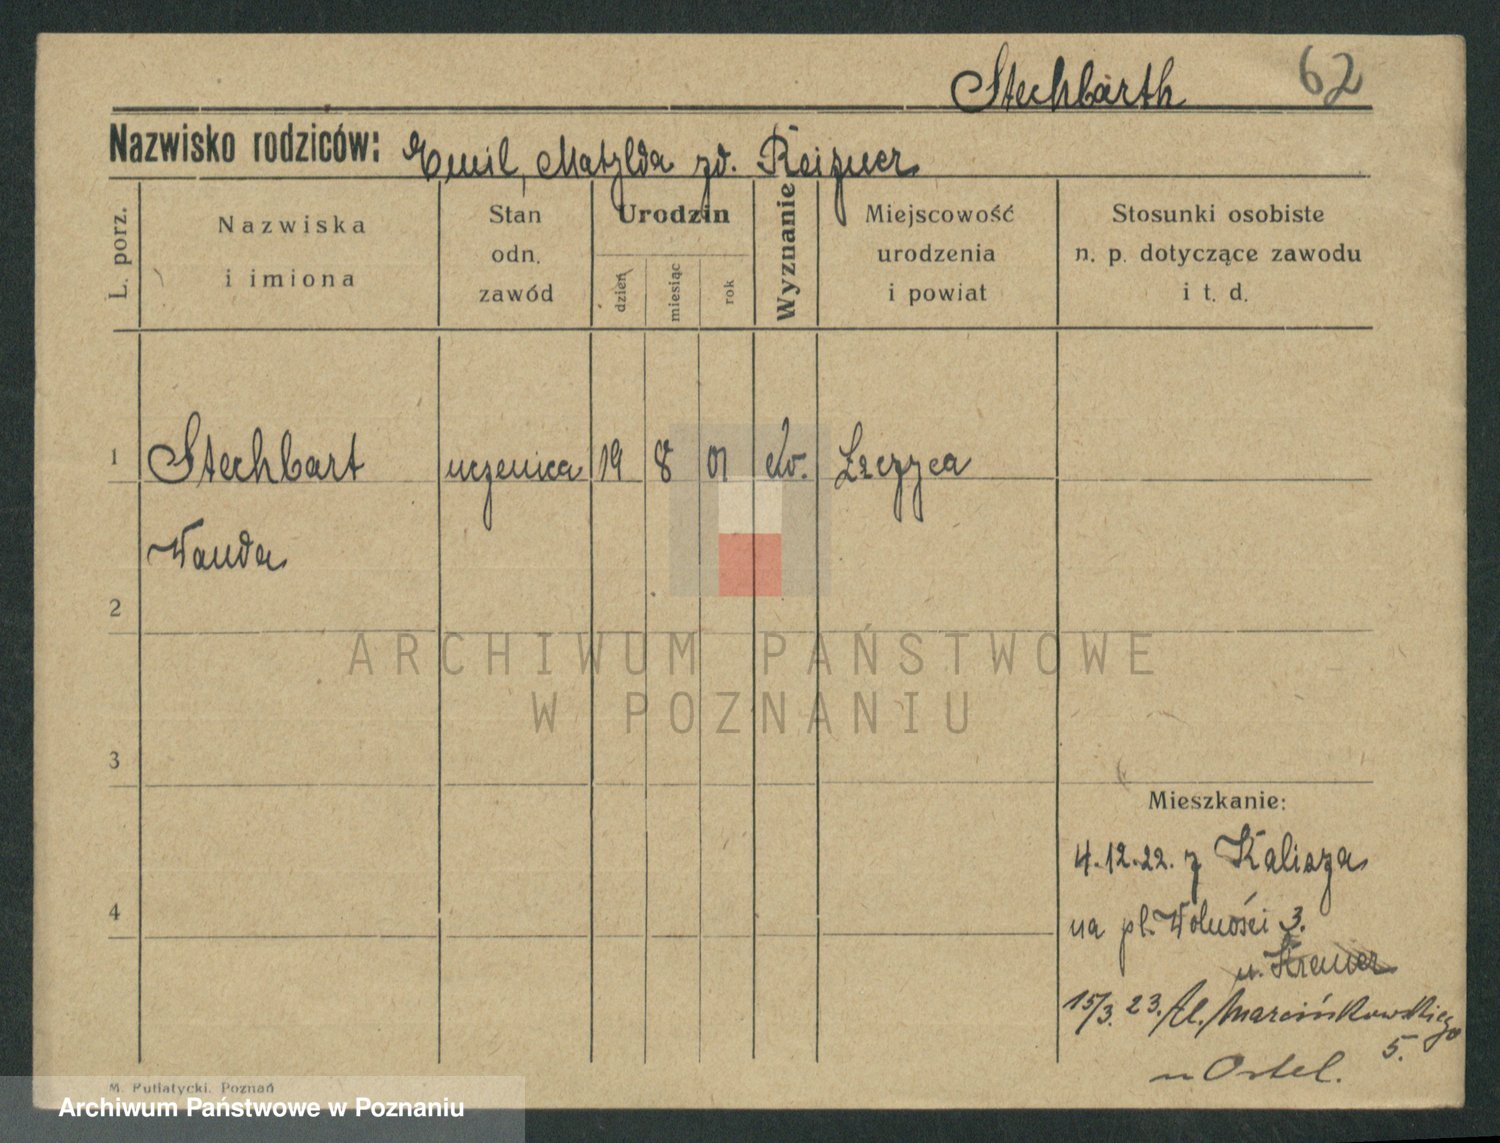 Stechbarth 62
Nazwisko rodziców: Emil, Matylda zd. Reizner
L. porz.
Nazwiska
i imiona
Stan
odn.
zawód
Urodzin
dzień
miesiąc
rok
Wyznanie
Miejscowość
urodzenia
i powiat
Stosunki osobiste
n. p. dotyczące zawodu
i t. d.
1 Stechbart uczenica 19 8 01 ew. Łęczyca
Wanda
2
3
4
ARCHIWUM PAŃSTWOWE
W POZNANIU
Mieszkanie:
4.12.22. z Kalisza
na pl. Wolności 3.
u.
15/3. 23. Al. Marcinkowskiego
5.
u Ortel.
M. Putiatycki, Poznań
Archiwum Państwowe w Poznaniu